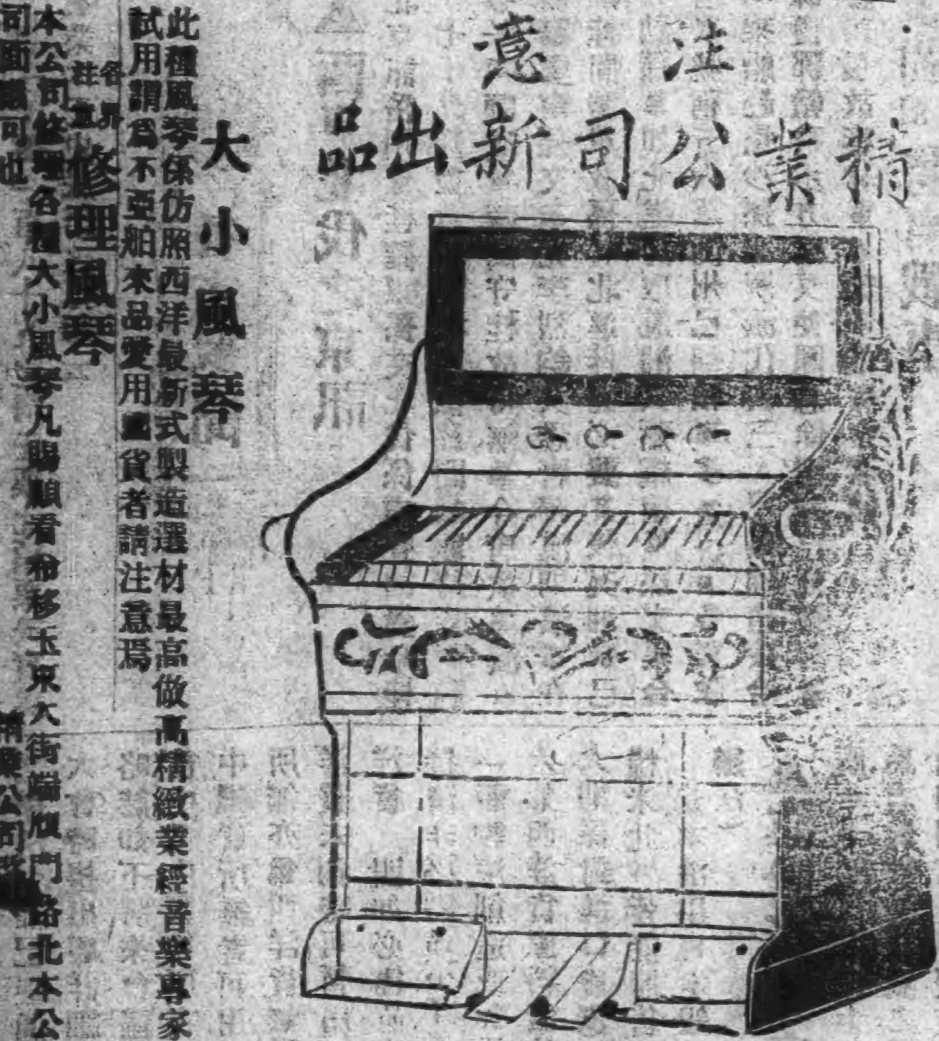 注意
精業公司新出品
大小風琴
此種風琴係仿照西洋最新式製造選材最高做高精緻業經音樂專家
試用謂爲不亞舶來品愛用國貨者請注意焉
各界
注意
修理風琴
本公司修理各種大小風琴凡賜顧看布移玉東大街端履門路北本公
司面懇可也
精業公司